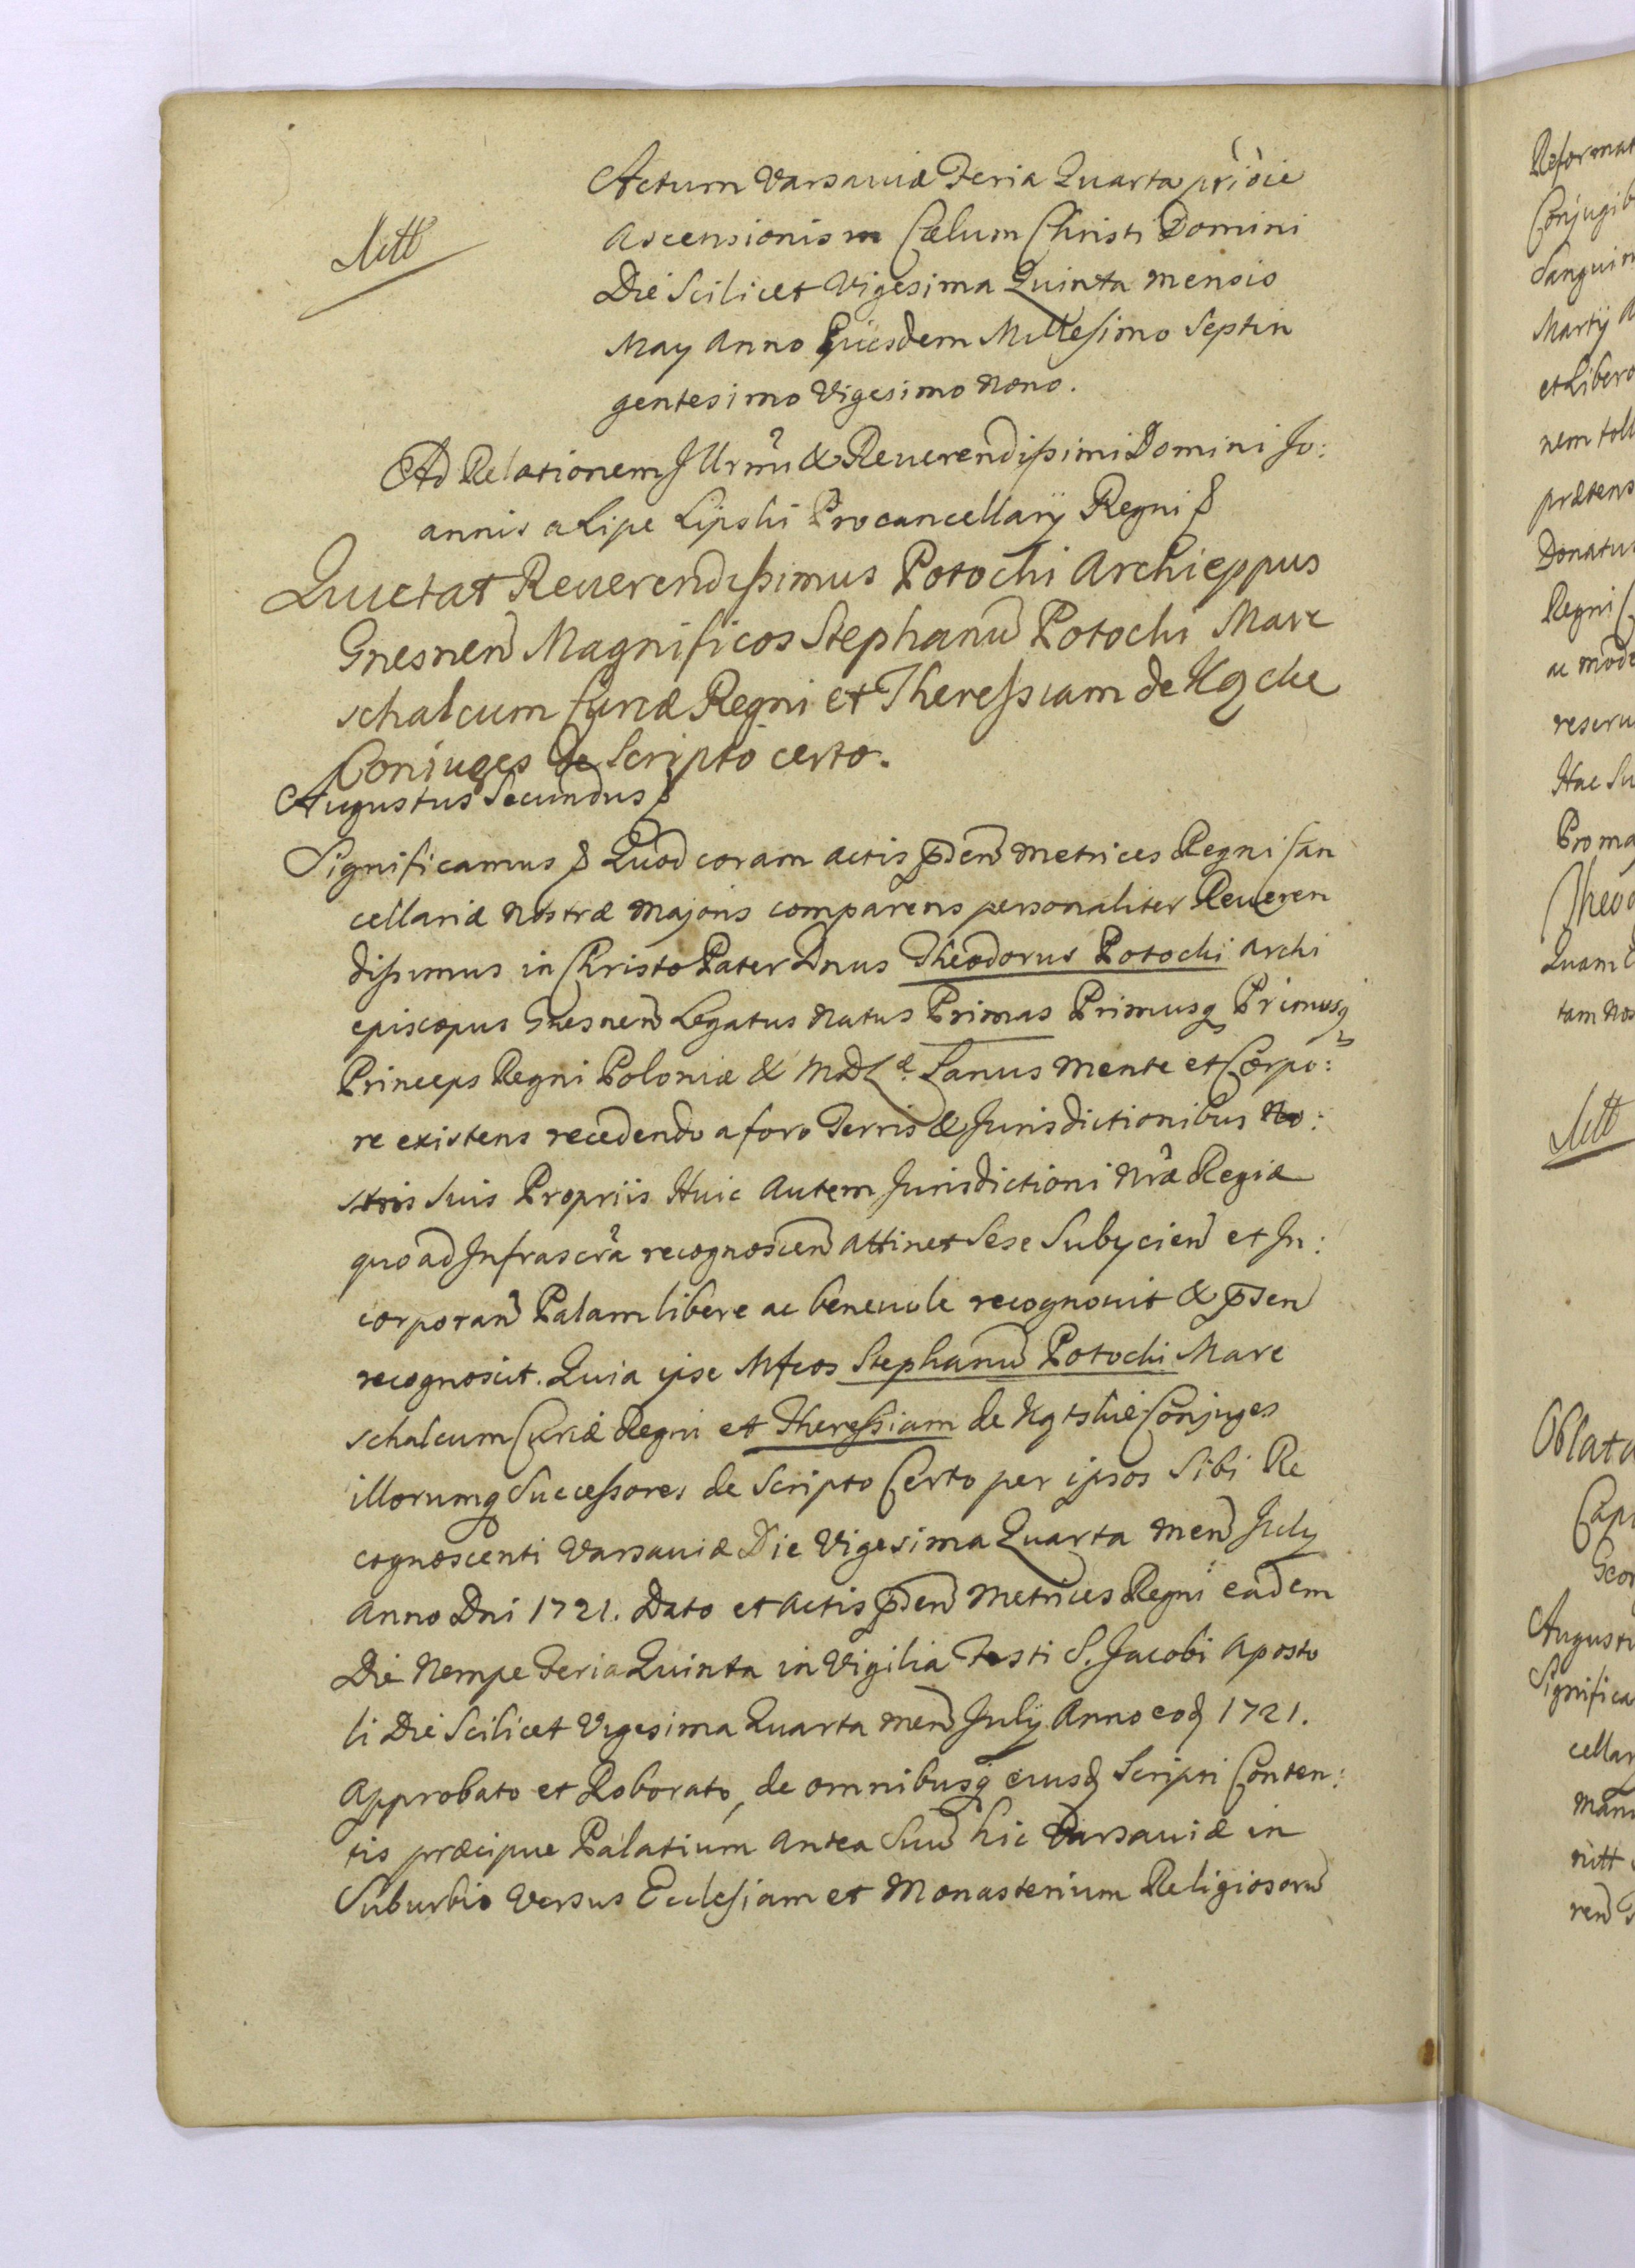 Actum Varsaviæ Feria Quarta pridie
Mtt
Ascensionis in Cælum Christi Domini
Die Scilicet Vigesima Quinta mensis
May Anno Ejusdem Millesimo Septin
gentesimo Vigesimo Nono.
Ad Relationem Illrmi & Reuerendissimi Domini Jo:
annis a Lipe Lipski Procancellarÿ Regni &
Quietat Reuerendissimus Potocki Archieppus
Gnesnen Magnificos Stephanu Potocki Mare
schalcum Curiæ Regni et Theressiam de Kąckie
Conjuges de Scripto certo.
Augustus Secundus &
Significamus & Quod coram actis pden Metrices Regni Can
cellariæ Nostræ Majoris comparens personaliter Reueren
dissimus in Christo Pater Dnus Theodorus Potocki Archi
episcopus Gnesnen Legatus Natus Primas Primusq Primusq
Princeps Regni Poloniæ & MDLæ. Sanus Mente et Corpo:
re existens recedendo a foro Terris & Jurisdictionibus No:
stris Suis Propriis Huic Autem Jurisdictioni Nræ Regiæ
quo ad Infrascra recognoscen attinet Sese Subycien et In:
corporan Palam libere ac beneuole recognouit & pden
recognoscit. Quia ipse Mfcos Stephanu Potocki Mare
schalcum Curiæ Regni et Theressiam de Kątskie Conjuges
illorumq Successores de Scripto Certo per ipsos Sibi Re
cognoscenti Varsauiæ Die Vigesima Quarta Men July
Anno Dni 1721. Dato et Actis pden Metrices Regni eadem
Die Nempe Feria Quinta in Vigilia Festi S. Jacobi Aposto
li Die Scilicet Vigesima Quarta Men Julÿ Anno eod 1721.
Approbato et Roborato, de omnibusq eiusd Scripti Conten:
tis præcipue Palatium Antea Suu hic Varsauiæ in
Suburbio Versus Ecclesiam et Monasterium Religiosoru
Reformat
Conjugib
Sanguin
Martÿ A
et Libero
nem toll
prætens
Donatus
Regni C
ac mode
reseru
Hac Su
Proma
Theod
Quam
tam Nos
Mtt
Oblata
Capi
Geor
Augustu
Significa
cellar
Man
nitt
ren